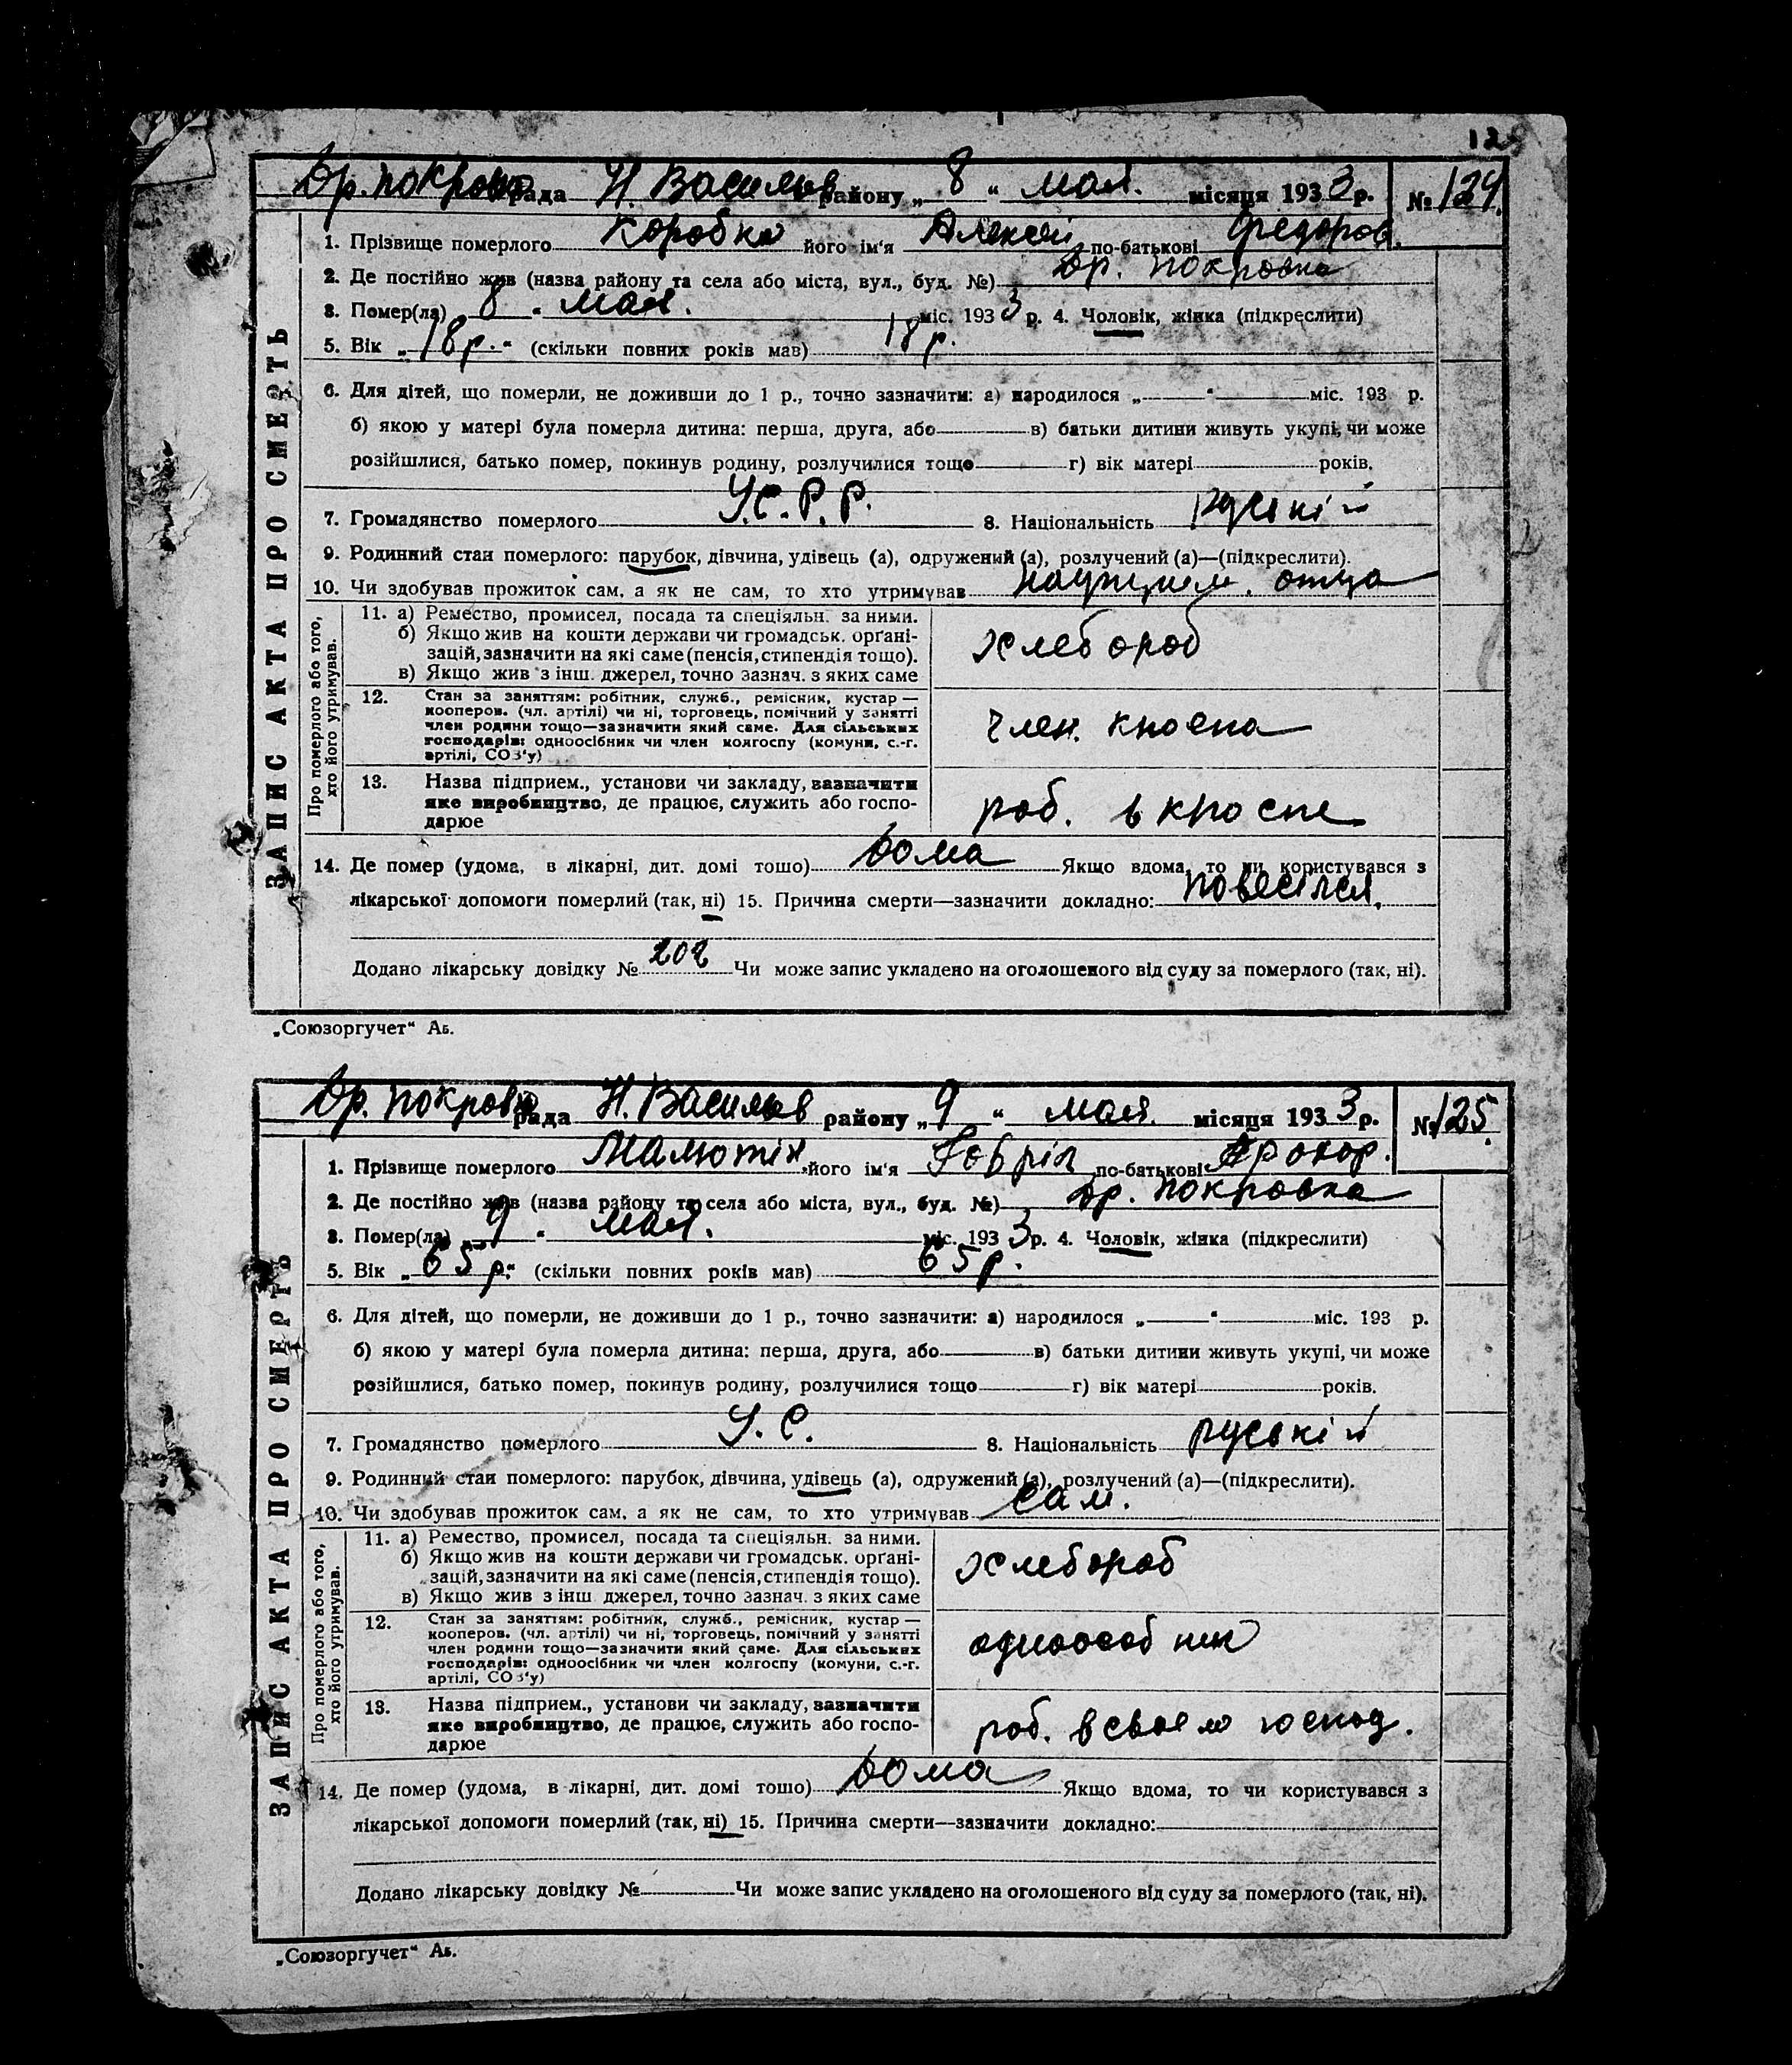 128
Вр. покровс рада Н. Васильев району „ 8 “ мая. місяця 1933 р. № 124.
1. Прізвище померлого Коробка його ім'я Алексей по-батькові Федоров.
2. Де постійно жив (назва району та села або міста, вул., буд. №) Вр. покровка
3. Помер(ла) 8 „ мая. міс. 1933 р. 4. Чоловік, жінка (підкреслити)
5. Вік „ 18 р. “ (скільки повних років мав) 18 р.
6. Для дітей, що померли, не доживши до 1 р., точно зазначити: а) народилося „ “ міс. 193 р.
б) якою у матері була померла дитина: перша, друга, або в) батьки дитини живуть укупі, чи може
розійшлися, батько помер, покинув родину, розлучилися тощо г) вік матері років.
7. Громадянство померлого У.С.Р.Р. 8. Національність руській
9. Родинний стан померлого: парубок, дівчина, удівець (а), одружений (а), розлучений (а)—(підкреслити).
10. Чи здобував прожиток сам, а як не сам, то хто утримував отца
ЗАПИС АКТА ПРО СМЕРТЬ
Про померлого або того,
хто його утримував.
11. а) Ремество, промисел, посада та спеціяльн. за ними.
б) Якщо жив на кошти держави чи громадськ. орґані-
зацій, зазначити на які саме (пенсія, стипендія тощо).
в) Якщо жив з інш. джерел, точно зазнач. з яких саме
хлебороб
12. Стан за заняттям: робітник, служб., ремісник, кустар —
кооперов. (чл. артілі) чи ні, торговець, помічний у занятті
член родини тощо—зазначити який саме. Для сільських
господарів: одноосібник чи член колгоспу (комуни, с.-г.
артілі, СОЗ'у)
член.
13. Назва підприєм., установи чи закладу, зазначити
яке виробництво, де працює, служить або госпо-
дарює
роб. в
14. Де помер (удома, в лікарні, дит. домі тощо) дома Якщо вдома, то чи користувався з
лікарської допомоги померлий (так, ні) 15. Причина смерти—зазначити докладно: повесілся.
Додано лікарську довідку № 202 Чи може запис укладено на оголошеного від суду за померлого (так, ні).
„Союзоргучет“ Аб.
Вр. покровс рада Н. Васильев району „ 9 “ мая. місяця 1933 р. № 125.
1. Прізвище померлого Малютін його ім'я Гавріл по-батькові Прохор.
2. Де постійно жив (назва району та села або міста, вул., буд. №) Вр. покровка
3. Помер(ла) 9 „ мая. міс. 1933 р. 4. Чоловік, жінка (підкреслити)
5. Вік „ 65 р. “ (скільки повних років мав) 65 р.
6. Для дітей, що померли, не доживши до 1 р., точно зазначити: а) народилося „ “ міс. 193 р.
б) якою у матері була померла дитина: перша, друга, або в) батьки дитини живуть укупі, чи може
розійшлися, батько помер, покинув родину, розлучилися тощо г) вік матері років.
7. Громадянство померлого У.С. 8. Національність руській
9. Родинний стан померлого: парубок, дівчина, удівець (а), одружений (а), розлучений (а)—(підкреслити).
10. Чи здобував прожиток сам, а як не сам, то хто утримував сам.
ЗАПИС АКТА ПРО СМЕРТЬ
Про померлого або того,
хто його утримував.
11. а) Ремество, промисел, посада та спеціяльн. за ними.
б) Якщо жив на кошти держави чи громадськ. орґані-
зацій, зазначити на які саме (пенсія, стипендія тощо).
в) Якщо жив з інш джерел, точно зазнач. з яких саме
хлебороб
12. Стан за заняттям: робітник, служб., ремісник, кустар —
кооперов. (чл. артілі) чи ні, торговець, помічний у занятті
член родини тощо—зазначити який саме. Для сільських
господарів: одноосібник чи член колгоспу (комуни, с.-г.
артілі, СОЗ'у)
одноособник
13. Назва підприєм., установи чи закладу, зазначити
яке виробництво, де працює, служить або госпо-
дарює
роб. в своем господ.
14. Де помер (удома, в лікарні, дит. домі тощо) дома Якщо вдома, то чи користувався з
лікарської допомоги померлий (так, ні) 15. Причина смерти—зазначити докладно:
Додано лікарську довідку № Чи може запис укладено на оголошеного від суду за померлого (так, ні).
„Союзоргучет“ Аб.